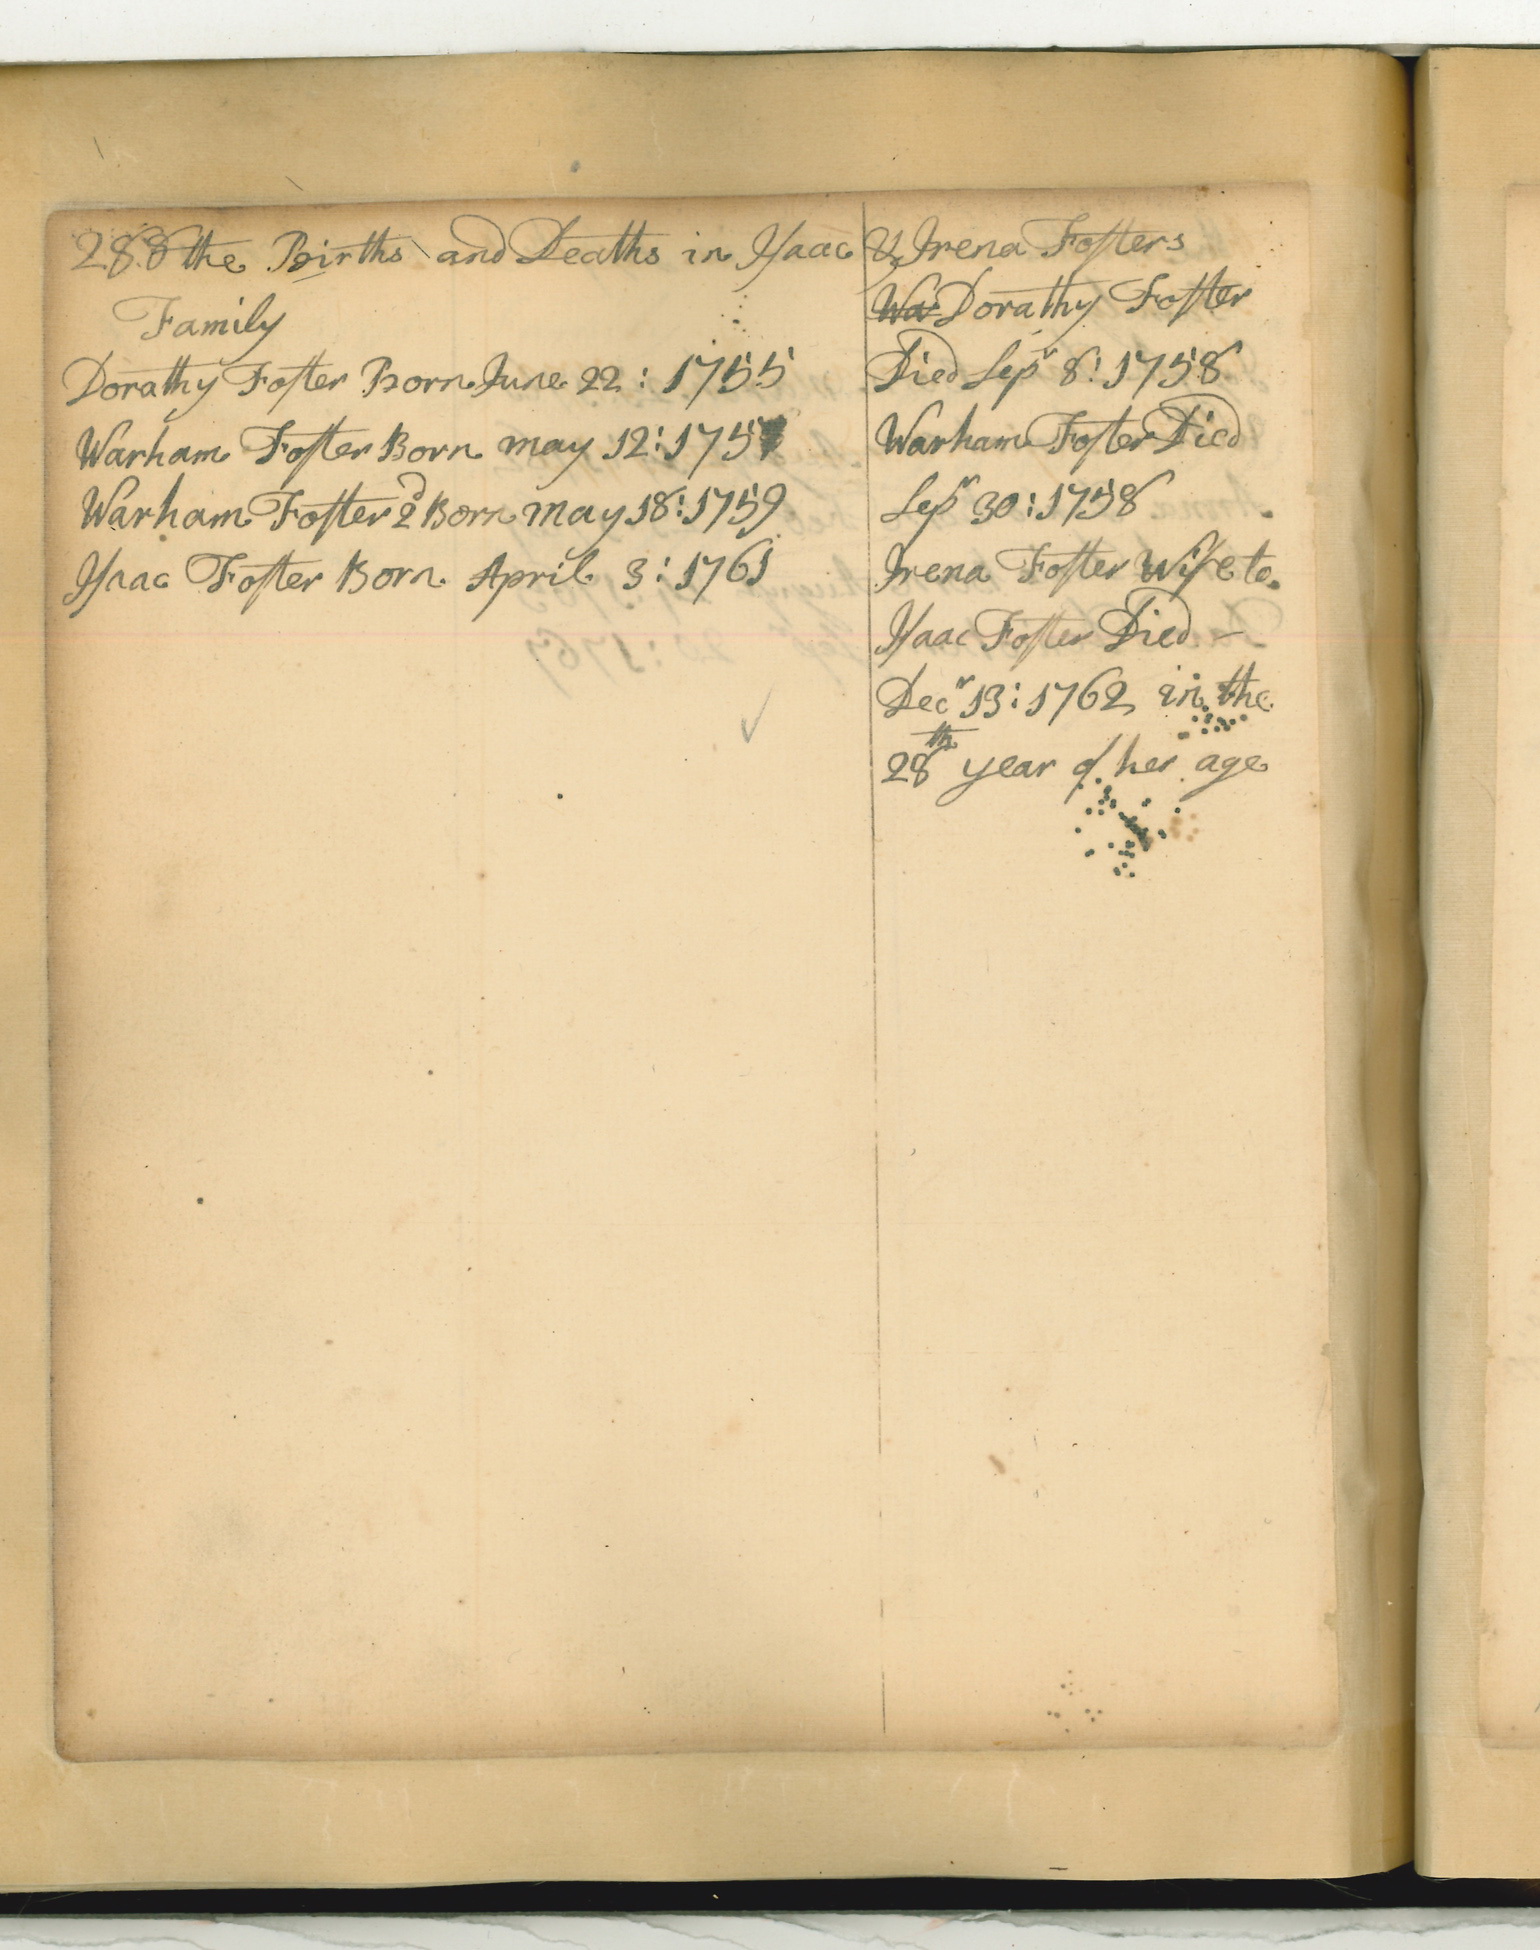 288 the Births and Deaths in Isaac & Irena Fosters
Family
Dorathy Foster Born June 22: 1755
Warham Foster Born may 12: 1757
Warham Foster 2d Born may 18: 1759
Isaac Foster Born April 3: 1761
Wa Dorathy Foster
Died Sepr 8: 1758
Warham Foster Died
Sepr 30: 1758
Irena Foster Wife to
Isaac Foster Died –
Decr 13: 1762 in the
28th year of her age